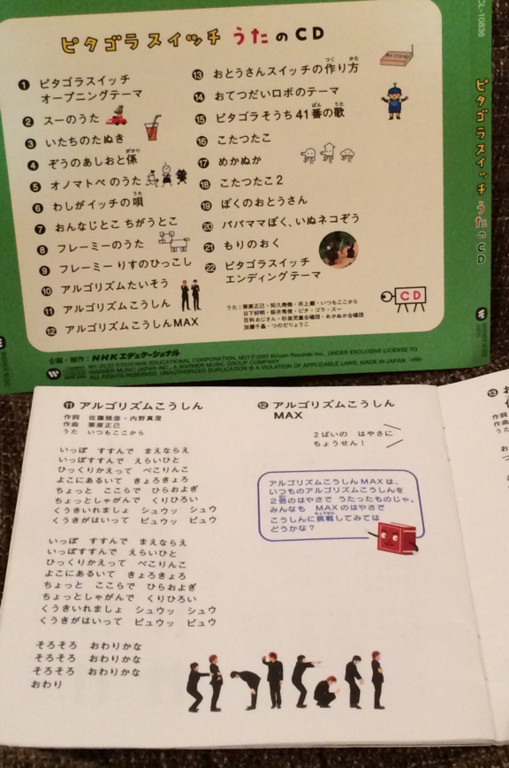 ピタゴラスイッチ うたのCD
① ピタゴラスイッチ
オープニングテーマ
② スーのうた
③ いたちのたぬき
④ ぞうのあしおと係
⑤ オノマトペのうた
⑥ わしがイッチの唄
⑦ おんなじとこ ちがうとこ
⑧ フレーミーのうた
⑨ フレーミー りすのひっこし
⑩ アルゴリズムたいそう
⑪ アルゴリズムこうしん
⑫ アルゴリズムこうしんMAX
⑬ おとうさんスイッチの作り方
⑭ おてつだいロボのテーマ
⑮ ピタゴラそうち41番の歌
⑯ こたつたこ
⑰ めかぬか
⑱ こたつたこ2
⑲ ぼくのおとうさん
⑳ パパママぼく、いぬネコぞう
㉑ もりのおく
㉒ ピタゴラスイッチ
エンディングテーマ
CD
企画・制作:NHKエデュケーショナル
ピタゴラスイッチ うたのCD
⑪ アルゴリズムこうしん
作詞 佐藤雅彦・内野真澄
作曲 栗原正己
うた いつもここから
いっぽ すすんで まえならえ
いっぽすすんで えらいひと
ひっくりかえって ぺこりんこ
よこにあるいて きょろきょろ
ちょっと ここらで ひらおよぎ
ちょっとしゃがんで くりひろい
くうきいれましょ シュウッ シュウ
くうきがはいって ピュウッ ピュウ
いっぽ すすんで まえならえ
いっぽすすんで えらいひと
ひっくりかえって ぺこりんこ
よこにあるいて きょろきょろ
ちょっと ここらで ひらおよぎ
ちょっとしゃがんで くりひろい
くうきいれましょ シュウッ シュウ
くうきがはいって ピュウッ ピュウ
そろそろ おわりかな
そろそろ おわりかな
そろそろ おわりかな
おわり
⑫ アルゴリズムこうしん
MAX
2ばいの はやさに
ちょうせん!
アルゴリズムこうしんMAXは、
いつものアルゴリズムこうしんを
2倍のはやさで うたったものじゃ。
みんなも MAXのはやさで
こうしんに挑戦してみては
どうかな?
⑬